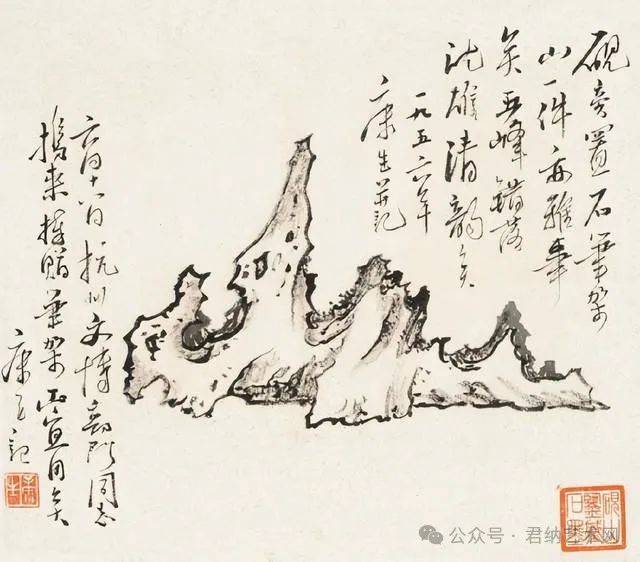 硯旁置石筆架
山一件亦雅事
矣五峰錯落
沈雄清韵矣
一九五六年
康生并記
六月十八日杭州文博部門同志
携来持贈筆架宜用矣
康生記
康生
公众号 · 君纳艺术网